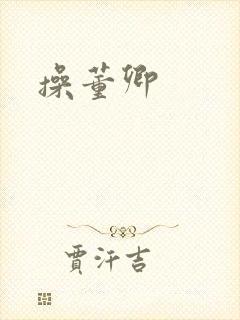 操董卿
贾汗吉